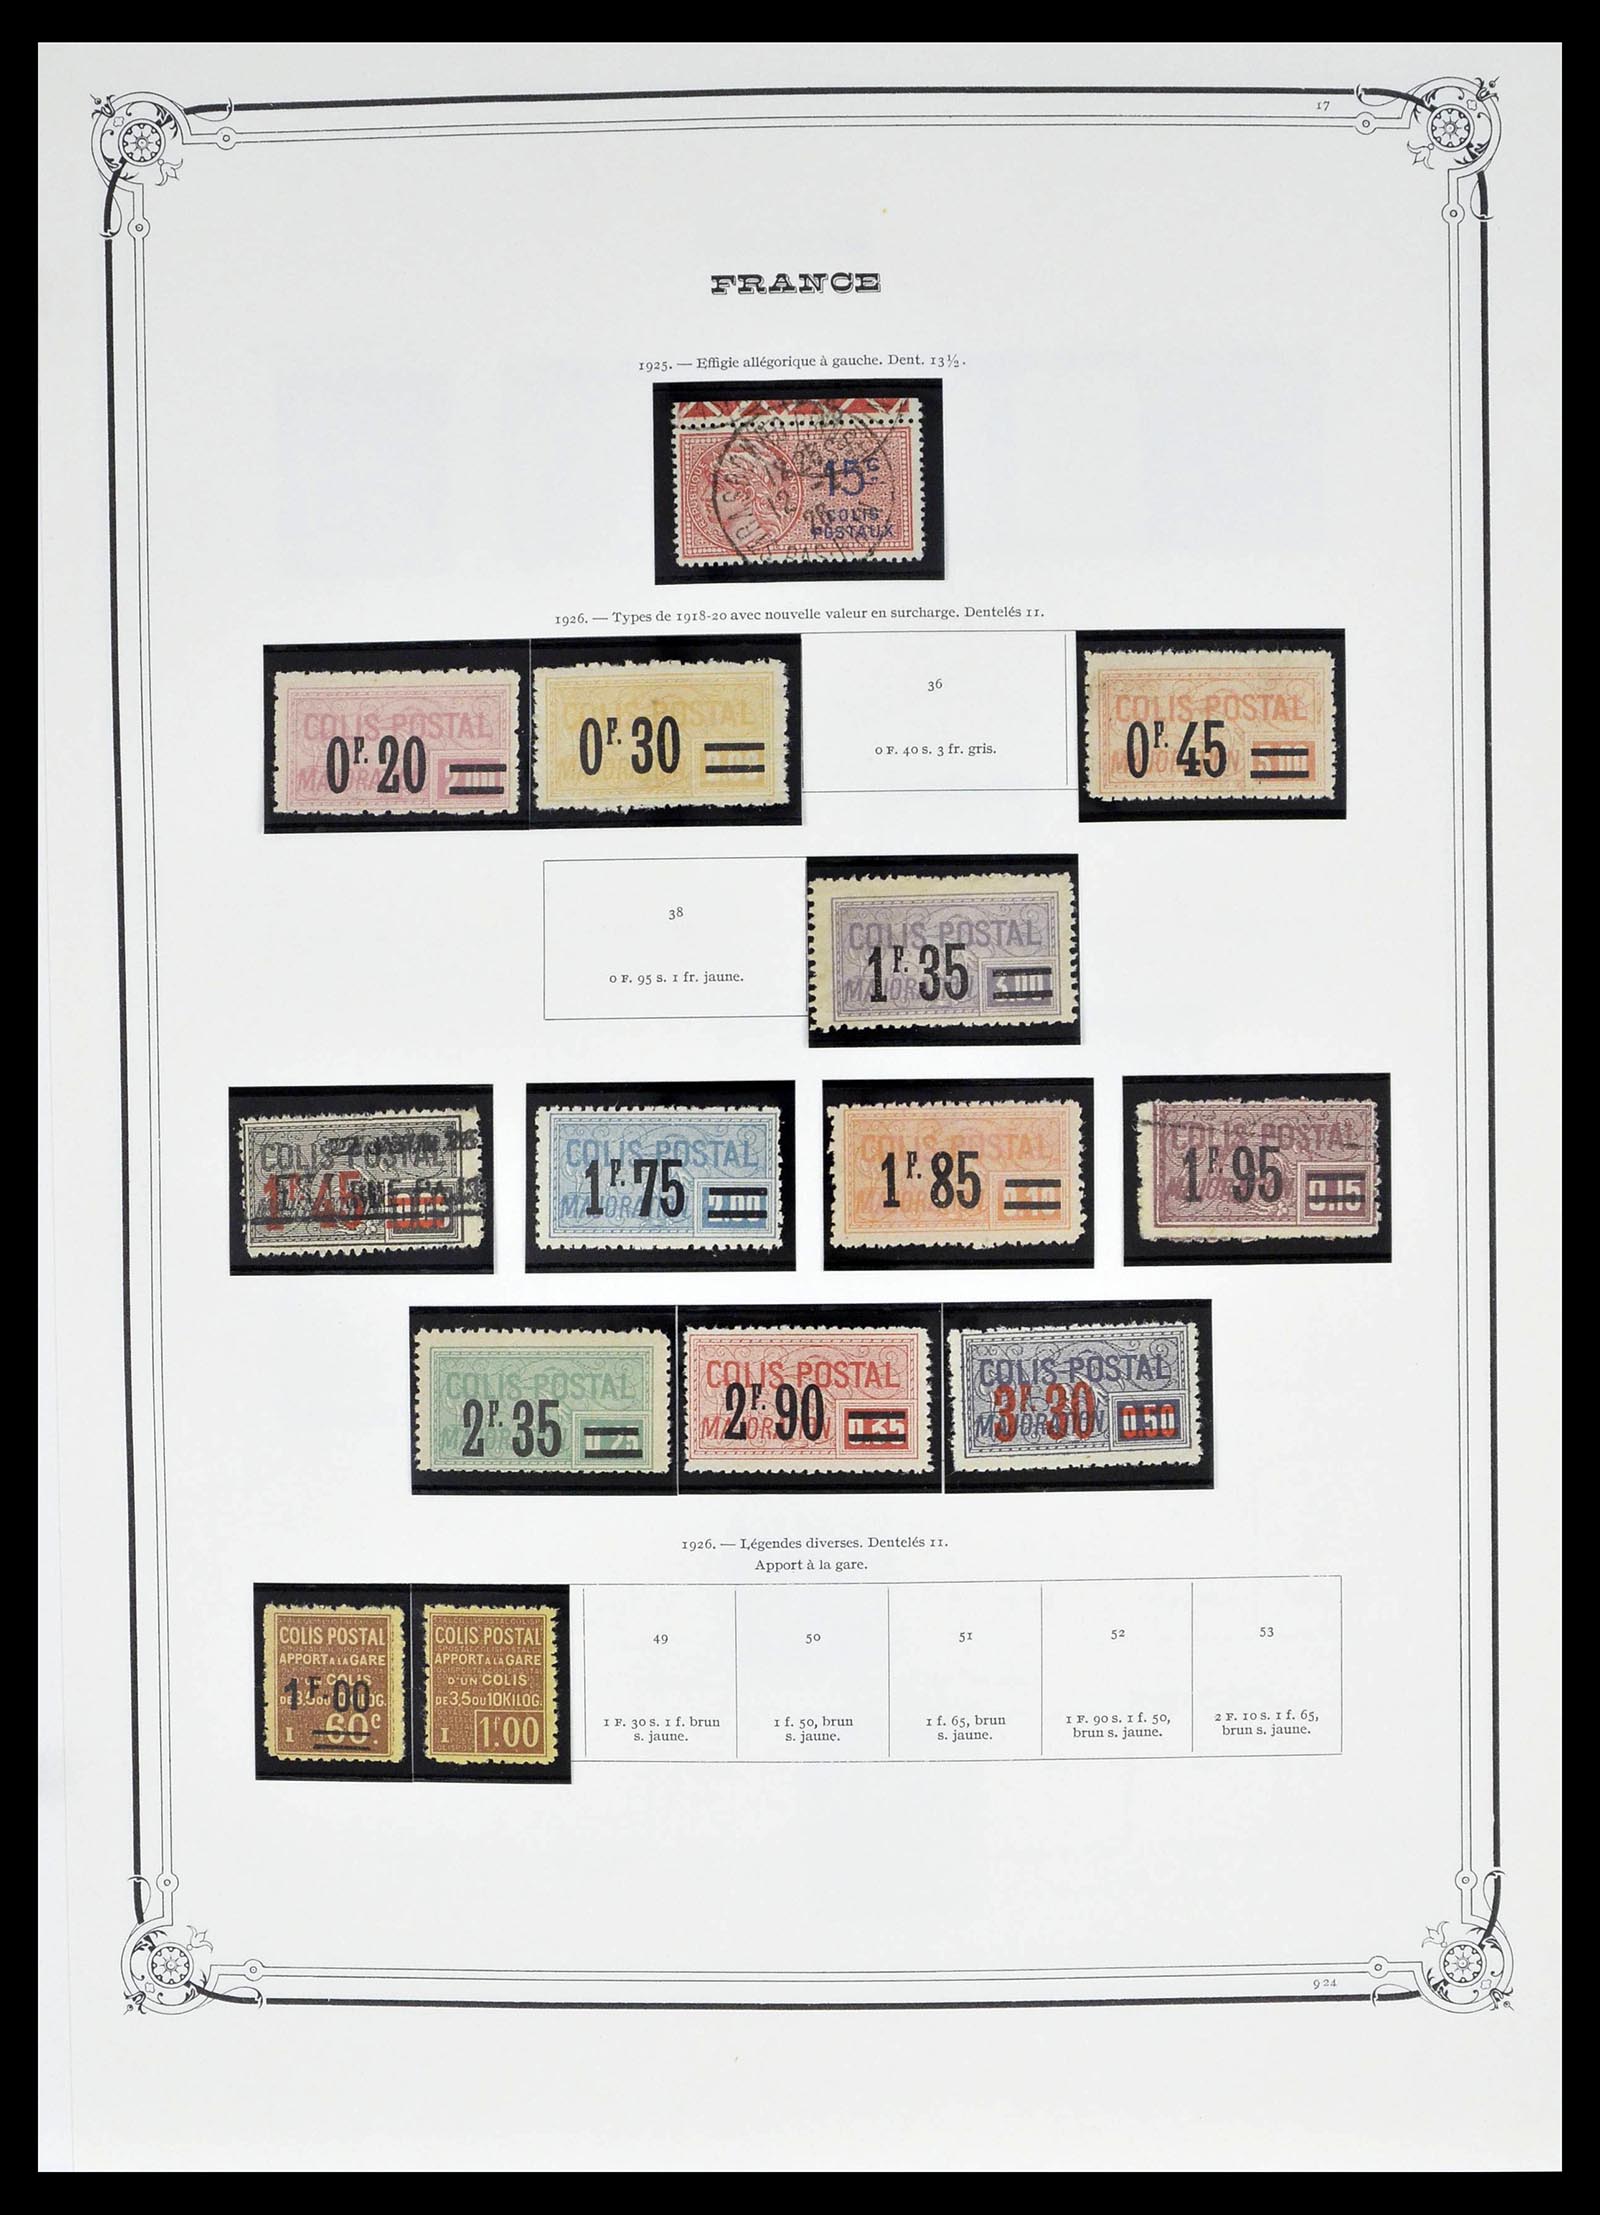 17
FRANCE
1925. — Effigie allégorique à gauche. Dent. 13½.
15c
COLIS
POSTAUX
1926. — Types de 1918-20 avec nouvelle valeur en surcharge. Dentelés 11.
COLIS POSTAL
0F.20
MAJORATION 2.00
COLIS POSTAL
0F.30
36
0 F. 40 s. 3 fr. gris.
COLIS POSTAL
0F.45
MAJORATION 5.00
38
0 F. 95 s. 1 fr. jaune.
COLIS POSTAL
1F.35
MAJORATION 3.00
COLIS POSTAL
1F.45
COLIS POSTAL
1F.75
MAJORATION 2.00
COLIS POSTAL
1F.85
MAJORATION
COLIS POSTAL
1F.95
MAJORATION 0.15
COLIS POSTAL
2F.35
MAJORATION 0.25
COLIS POSTAL
2F.90
MAJORATION 0.35
COLIS POSTAL
3F.30
MAJORATION 0.50
1926. — Légendes diverses. Dentelés 11.
Apport à la gare.
COLIS POSTAL
APPORT A LA GARE
D'UN COLIS
DE 3,5 OU 10 KILOG.
1F.00
I 60c
COLIS POSTAL
APPORT A LA GARE
D'UN COLIS
DE 3,5 OU 10 KILOG.
I 1f00
49
1 F. 30 s. 1 f. brun
s. jaune.
50
1 f. 50, brun
s. jaune.
51
1 f. 65, brun
s. jaune.
52
1 F. 90 s. 1 f. 50,
brun s. jaune.
53
2 F. 10 s. 1 f. 65,
brun s. jaune.
924